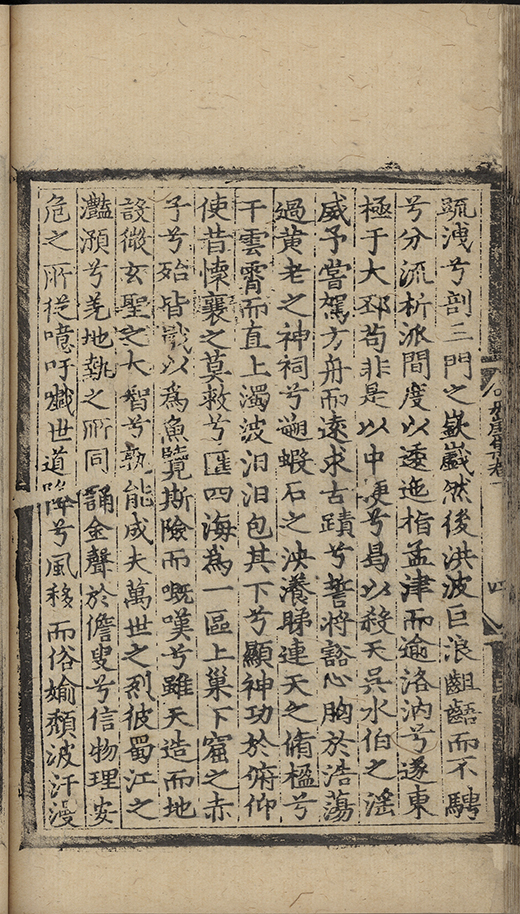 疏洩兮剖三門之嶔巇然後洪波巨浪齟齬而不騁
兮分流析派間度以逶迤指孟津而逾洛汭兮遂東
極于大邳苟非是以中梗兮曷以殺天吳水伯之淫
威予嘗駕方舟而遠求古蹟兮誓將豁心胸於浩蕩
過黃老之神祠兮遡蝦石之泱瀁睇連天之脩楹兮
干雲霄而直上濁波汨汨包其下兮顯神功於俯仰
使昔懷襄之莫救兮匯四海為一區上巢下窟之赤
子兮殆皆戢以為魚覽斯險而嘅嘆兮雖天造而地
設微玄聖之大智兮孰能成夫萬世之烈彼蜀江之
灩澦兮羌地埶之所同誦金聲於儋叟兮信物理安
危之所從噫吁戲世道降兮風移而俗媮頹波汗漫
卷一
四